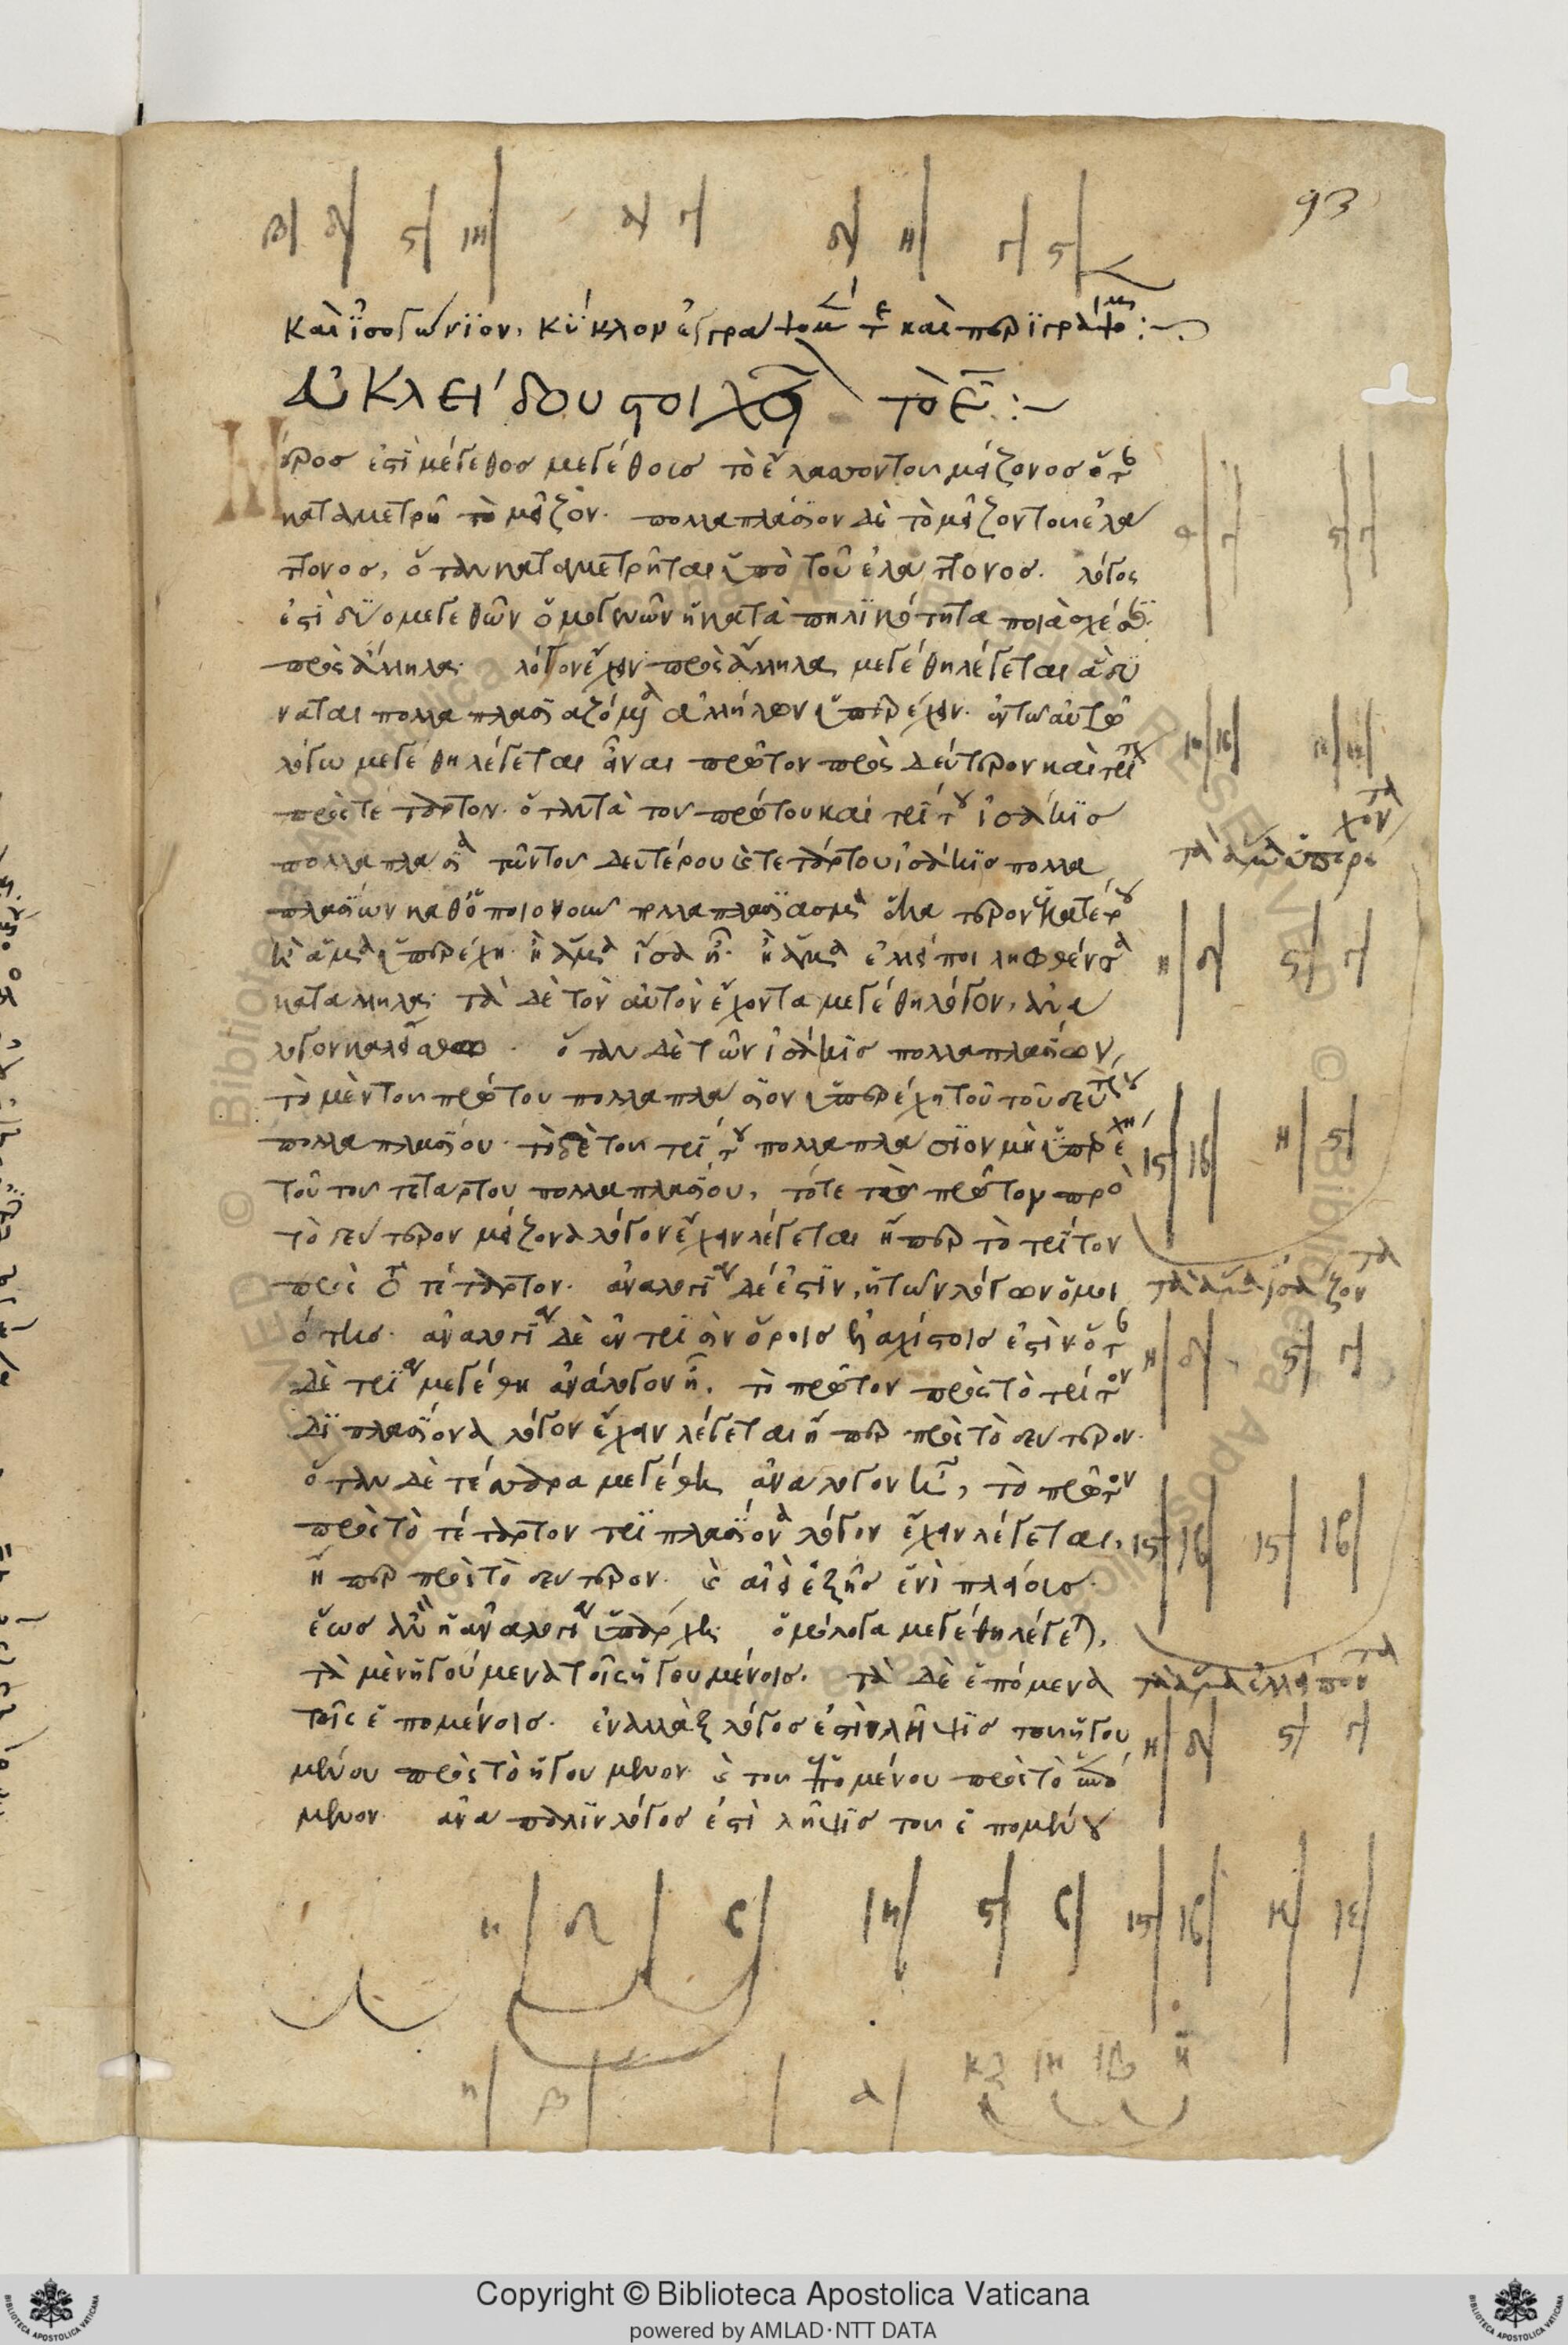 93
καὶ ἰσογώνιον, κύκλον ἐγγράψομέν τε καὶ περιγράψομεν :~
Εὐκλείδου στοιχείων τὸ ε :~
Μέρος ἐστὶ μέγεθος μεγέθους τὸ ἔλασσον τοῦ μείζονος ὅταν
καταμετρῇ τὸ μεῖζον. πολλαπλάσιον δὲ τὸ μεῖζον τοῦ ἐλάτ
τονος, ὅταν καταμετρῆται ὑπὸ τοῦ ἐλάττονος. λόγος
ἐστὶ δύο μεγεθῶν ὁμογενῶν ἡ κατὰ πηλικότητα ποιὰ σχέσις
πρὸς ἄλληλα. λόγον ἔχειν πρὸς ἄλληλα μεγέθη λέγεται ἃ δύ
ναται πολλαπλασιαζόμενα ἀλλήλων ὑπερέχειν. ἐν τῷ αὐτῷ
λόγω μεγέθη λέγεται εἶναι πρῶτον πρὸς δεύτερον καὶ τρίτον
πρὸς τέταρτον. ὅταν τὰ τοῦ πρώτου καὶ τρίτου ἰσάκις
πολλαπλάσια τῶν τοῦ δευτέρου καὶ τετάρτου ἰσάκις πολλα
πλασίων καθ' ὁποιονοῦν πολλαπλασιασμὸν ἑκάτερον ἑκατέρου
ἢ ἅμα ὑπερέχη ἢ ἅμα ἴσα ᾖ ἢ ἅμα ἐλλείπη ληφθέντα
κατάλληλα. τὰ δὲ τὸν αὐτὸν ἔχοντα μεγέθη λόγον, ἀνά
λογον καλείσθω. ὅταν δὲ τῶν ἰσάκις πολλαπλασίων,
τὸ μὲν τοῦ πρώτου πολλαπλάσιον ὑπερέχη τοῦ τοῦ δευτέρου
πολλαπλασίου. τὸ δὲ τοῦ τρίτου πολλαπλάσιον μὴ ὑπερέχη
τοῦ τοῦ τετάρτου πολλαπλασίου, τότε τὸ πρῶτον πρὸς
τὸ δεύτερον μείζονα λόγον ἔχειν λέγεται ἤπερ τὸ τρίτον
πρὸς τὸ τέταρτον. ἀναλογία δέ ἐστιν, ἡ τῶν λόγων ὁμοι
ότης. ἀναλογία δὲ ἐν τρισὶν ὅροις ἐλαχίστοις ἐστὶν ὅταν
δὲ τρία μεγέθη ἀνάλογον ᾖ, τὸ πρῶτον πρὸς τὸ τρίτον
διπλασίονα λόγον ἔχειν λέγεται ἤπερ πρὸς τὸ δεύτερον.
ὅταν δὲ τέσσαρα μεγέθη ἀνάλογον ᾖ, τὸ πρῶτον
πρὸς τὸ τέταρτον τριπλασίονα λόγον ἔχειν λέγεται,
ἤπερ πρὸς τὸ δεύτερον. καὶ ἀεὶ ἑξῆς ἑνὶ πλείους
ἕως ἂν ἡ ἀναλογία ὑπάρχη. ὁμόλογα μεγέθη λέγεται,
τὰ μὲν ἡγούμενα τοῖς ἡγουμένοις. τὰ δὲ ἑπόμενα
τοῖς ἑπομένοις. ἐναλλὰξ λόγος ἐστὶ λῆψις τοῦ ἡγου
μένου πρὸς τὸ ἡγούμενον καὶ τοῦ ἑπομένου πρὸς τὸ ἑπό
μενον. ἀνάπαλιν λόγος ἐστὶ λῆψις τοῦ ἑπομένου
τὰ ἅμα ὑπερέχοντα
τὰ ἅμα ἰσάζοντα
τὰ ἅμα ἐλλείποντα
Copyright © Biblioteca Apostolica Vaticana
powered by AMLAD·NTT DATA